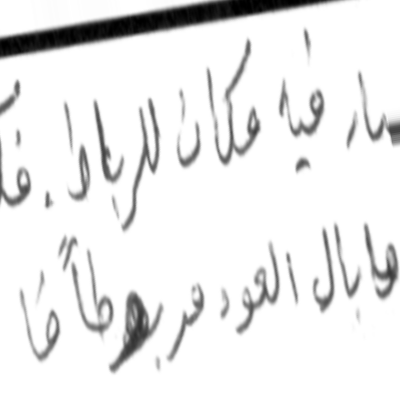 صار فيه مكان للرباط. فك
ما بال العود مربوطاً ما